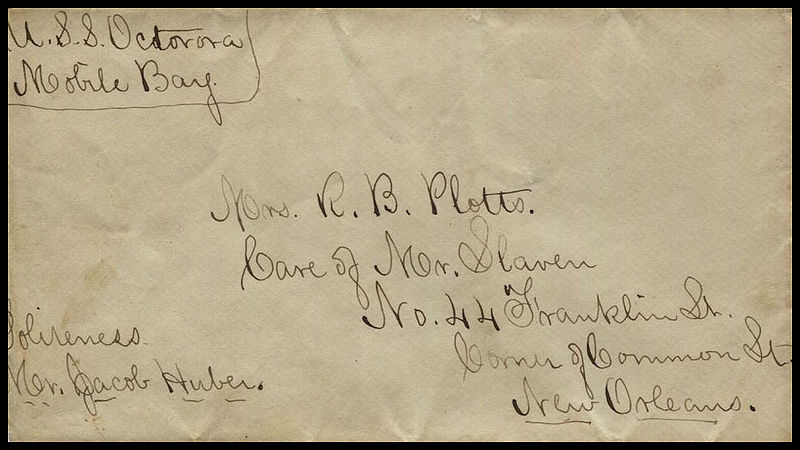 U.S.S. Octorora
Mobile Bay.
Mrs. R. B. Plotts.
Care of Mr. Slaven
No. 44 Franklin St.
Corner of Common St.
New Orleans.
Politeness.
Mr. Jacob Huber.